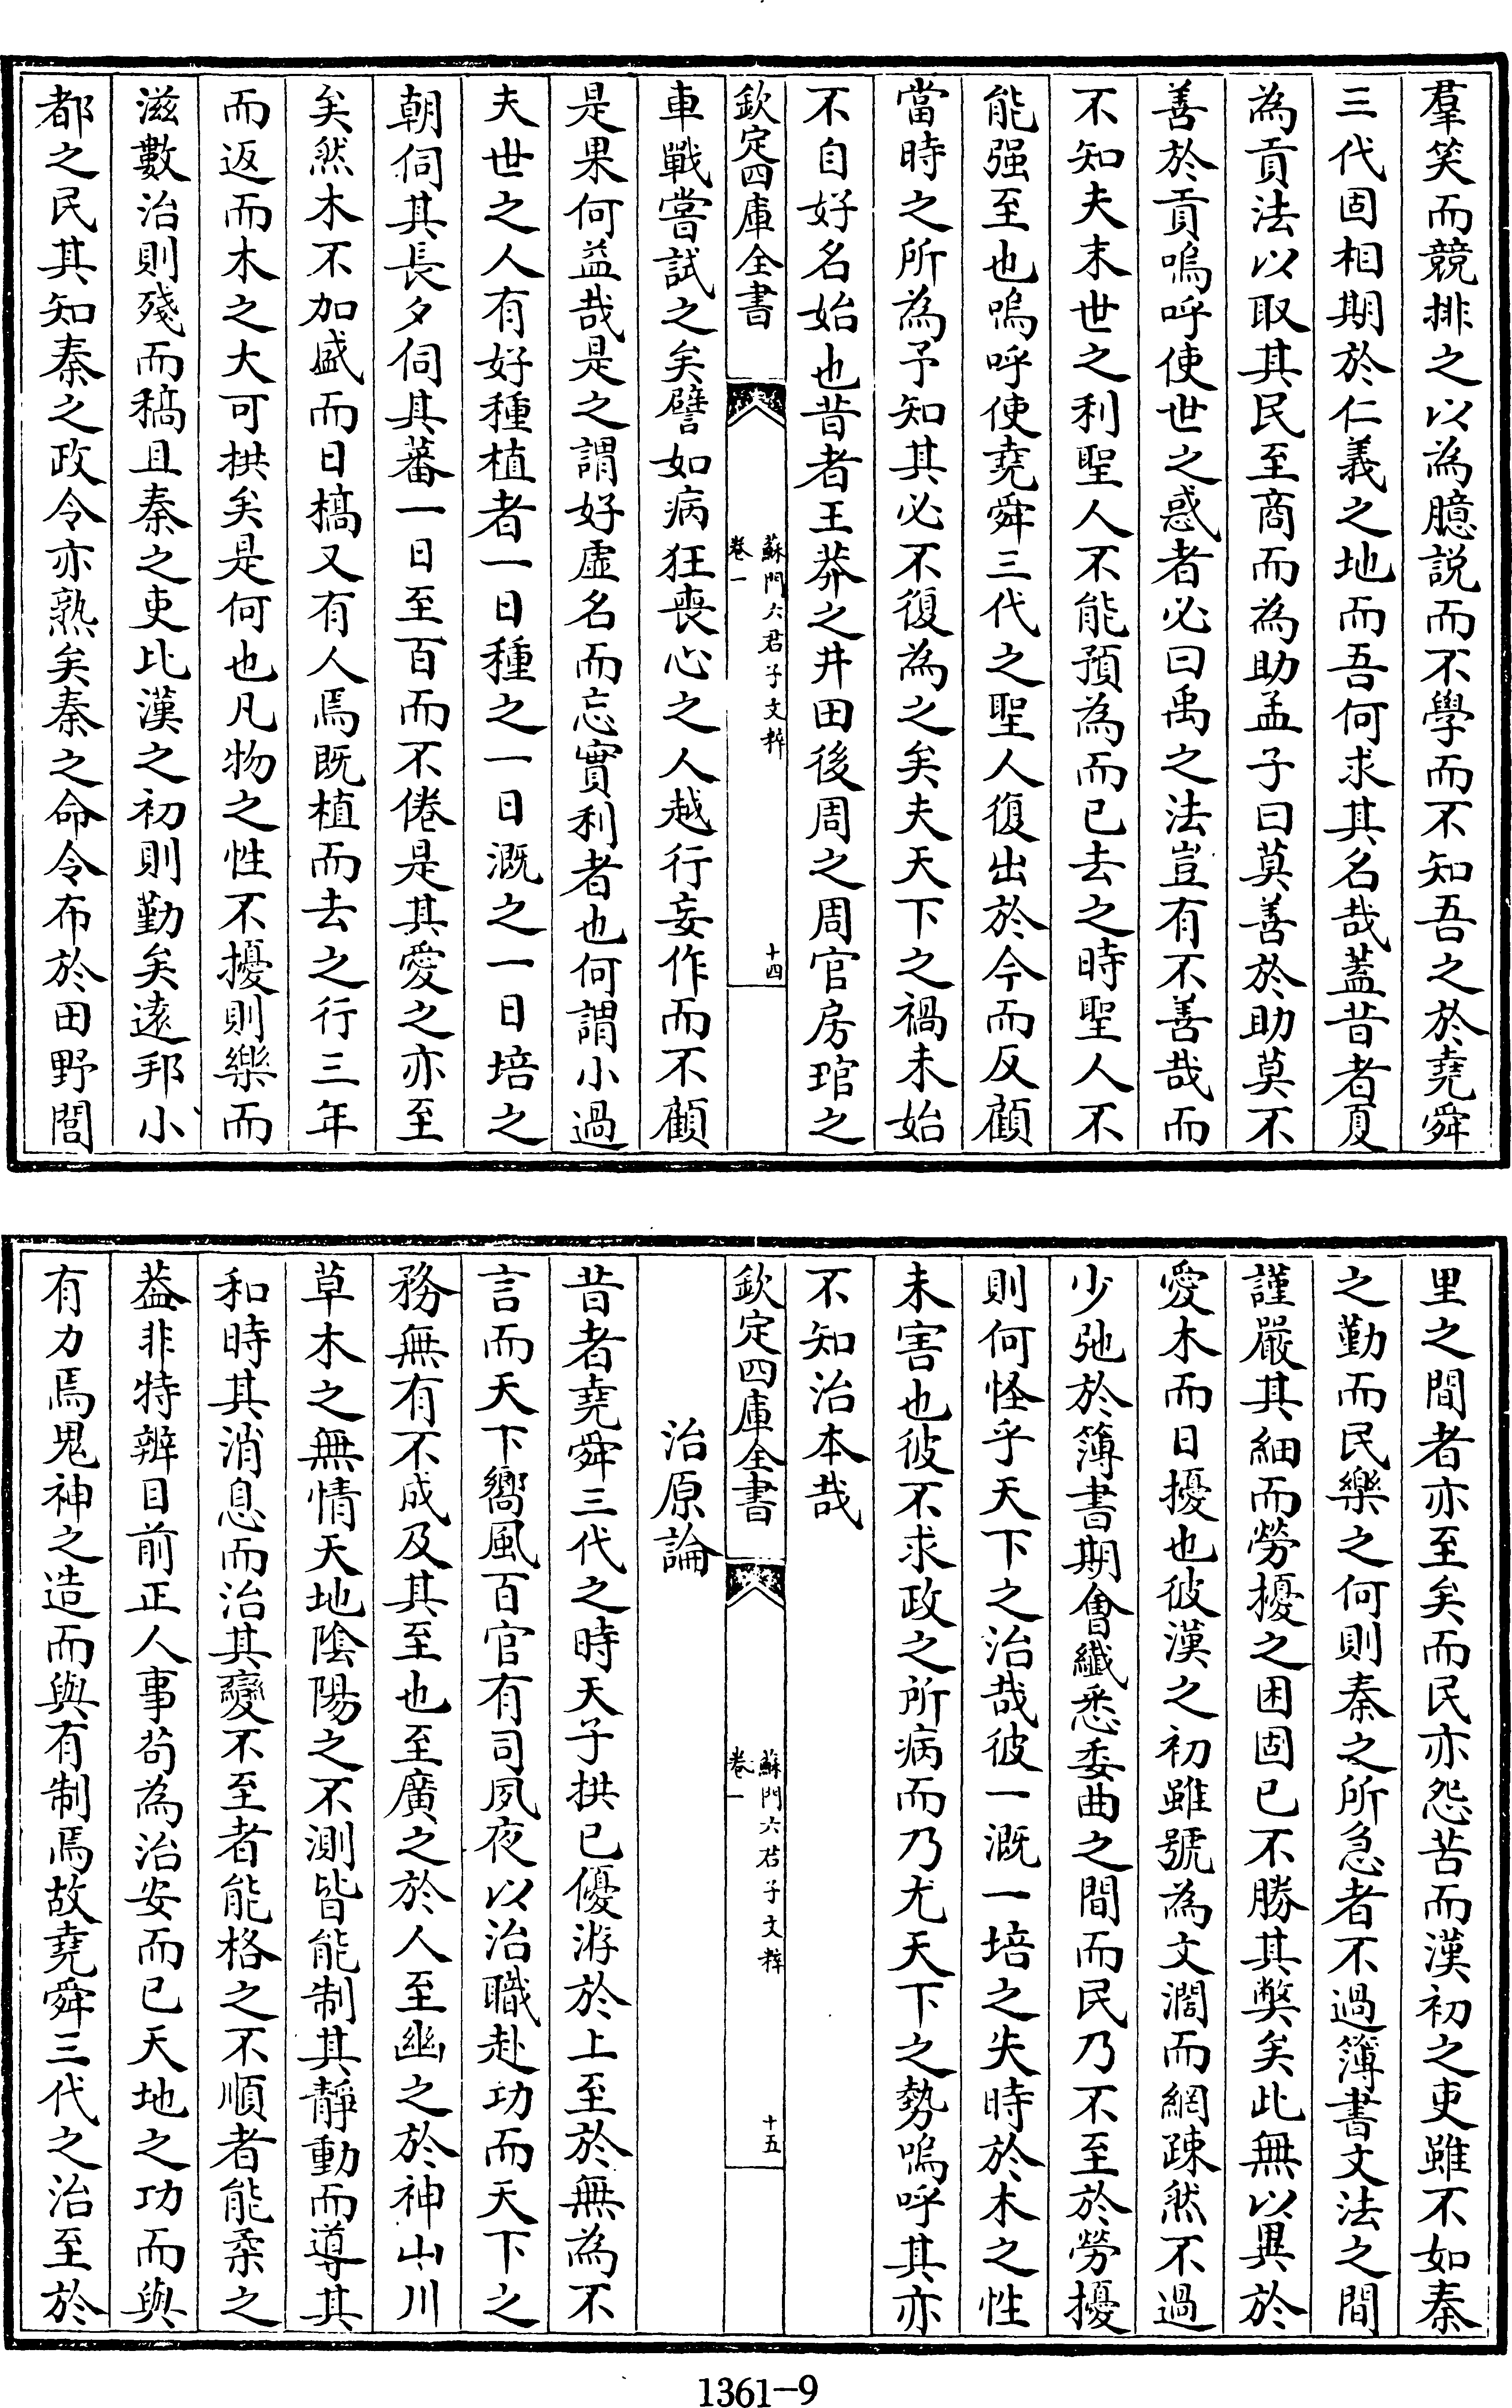 羣笑而競排之以為臆説而不學而不知吾之於堯舜
三代固相期於仁義之地而吾何求其名哉蓋昔者夏
為貢法以取其民至商而為助孟子曰莫善於助莫不
善於貢嗚呼使世之惑者必曰禹之法豈有不善哉而
不知夫末世之利聖人不能預為而已去之時聖人不
能强至也嗚呼使堯舜三代之聖人復出於今而反顧
當時之所為予知其必不復為之矣夫天下之禍未始
不自好名始也昔者王莽之井田後周之周官房琯之
欽定四庫全書
蘇門六君子文粹
卷一
十四
車戰嘗試之矣譬如病狂喪心之人越行妄作而不顧
是果何益哉是之謂好虚名而忘實利者也何謂小過
夫世之人有好種植者一日種之一日溉之一日培之
朝伺其長夕伺其蕃一日至百而不倦是其愛之亦至
矣然木不加盛而日槁又有人焉既植而去之行三年
而返而木之大可拱矣是何也凡物之性不擾則樂而
滋數治則殘而稿且秦之吏比漢之初則勤矣逺邦小
都之民其知秦之政令亦熟矣秦之命令布於田野閭
里之間者亦至矣而民亦怨苦而漢初之吏雖不如秦
之勤而民樂之何則秦之所急者不過簿書文法之間
謹嚴其細而勞擾之困固已不勝其獘矣此無以異於
愛木而日擾也彼漢之初雖號為文濶而網疎然不過
少弛於簿書期㑹纎悉委曲之間而民乃不至於勞擾
則何怪乎天下之治哉彼一溉一培之失時於木之性
未害也彼不求政之所病而乃尤天下之勢嗚呼其亦
不知治本哉
欽定四庫全書
蘇門六君子文粹
卷一
十五
治原論
昔者堯舜三代之時天子拱已優游於上至於無為不
言而天下嚮風百官有司夙夜以治職赴功而天下之
務無有不成及其至也至廣之於人至幽之於神山川
草木之無情天地隂陽之不測皆能制其靜動而導其
和時其消息而治其變不至者能格之不順者能柔之
葢非特辨目前正人事茍為治安而已天地之功而與
有力焉鬼神之造而與有制焉故堯舜三代之治至於
1361—9